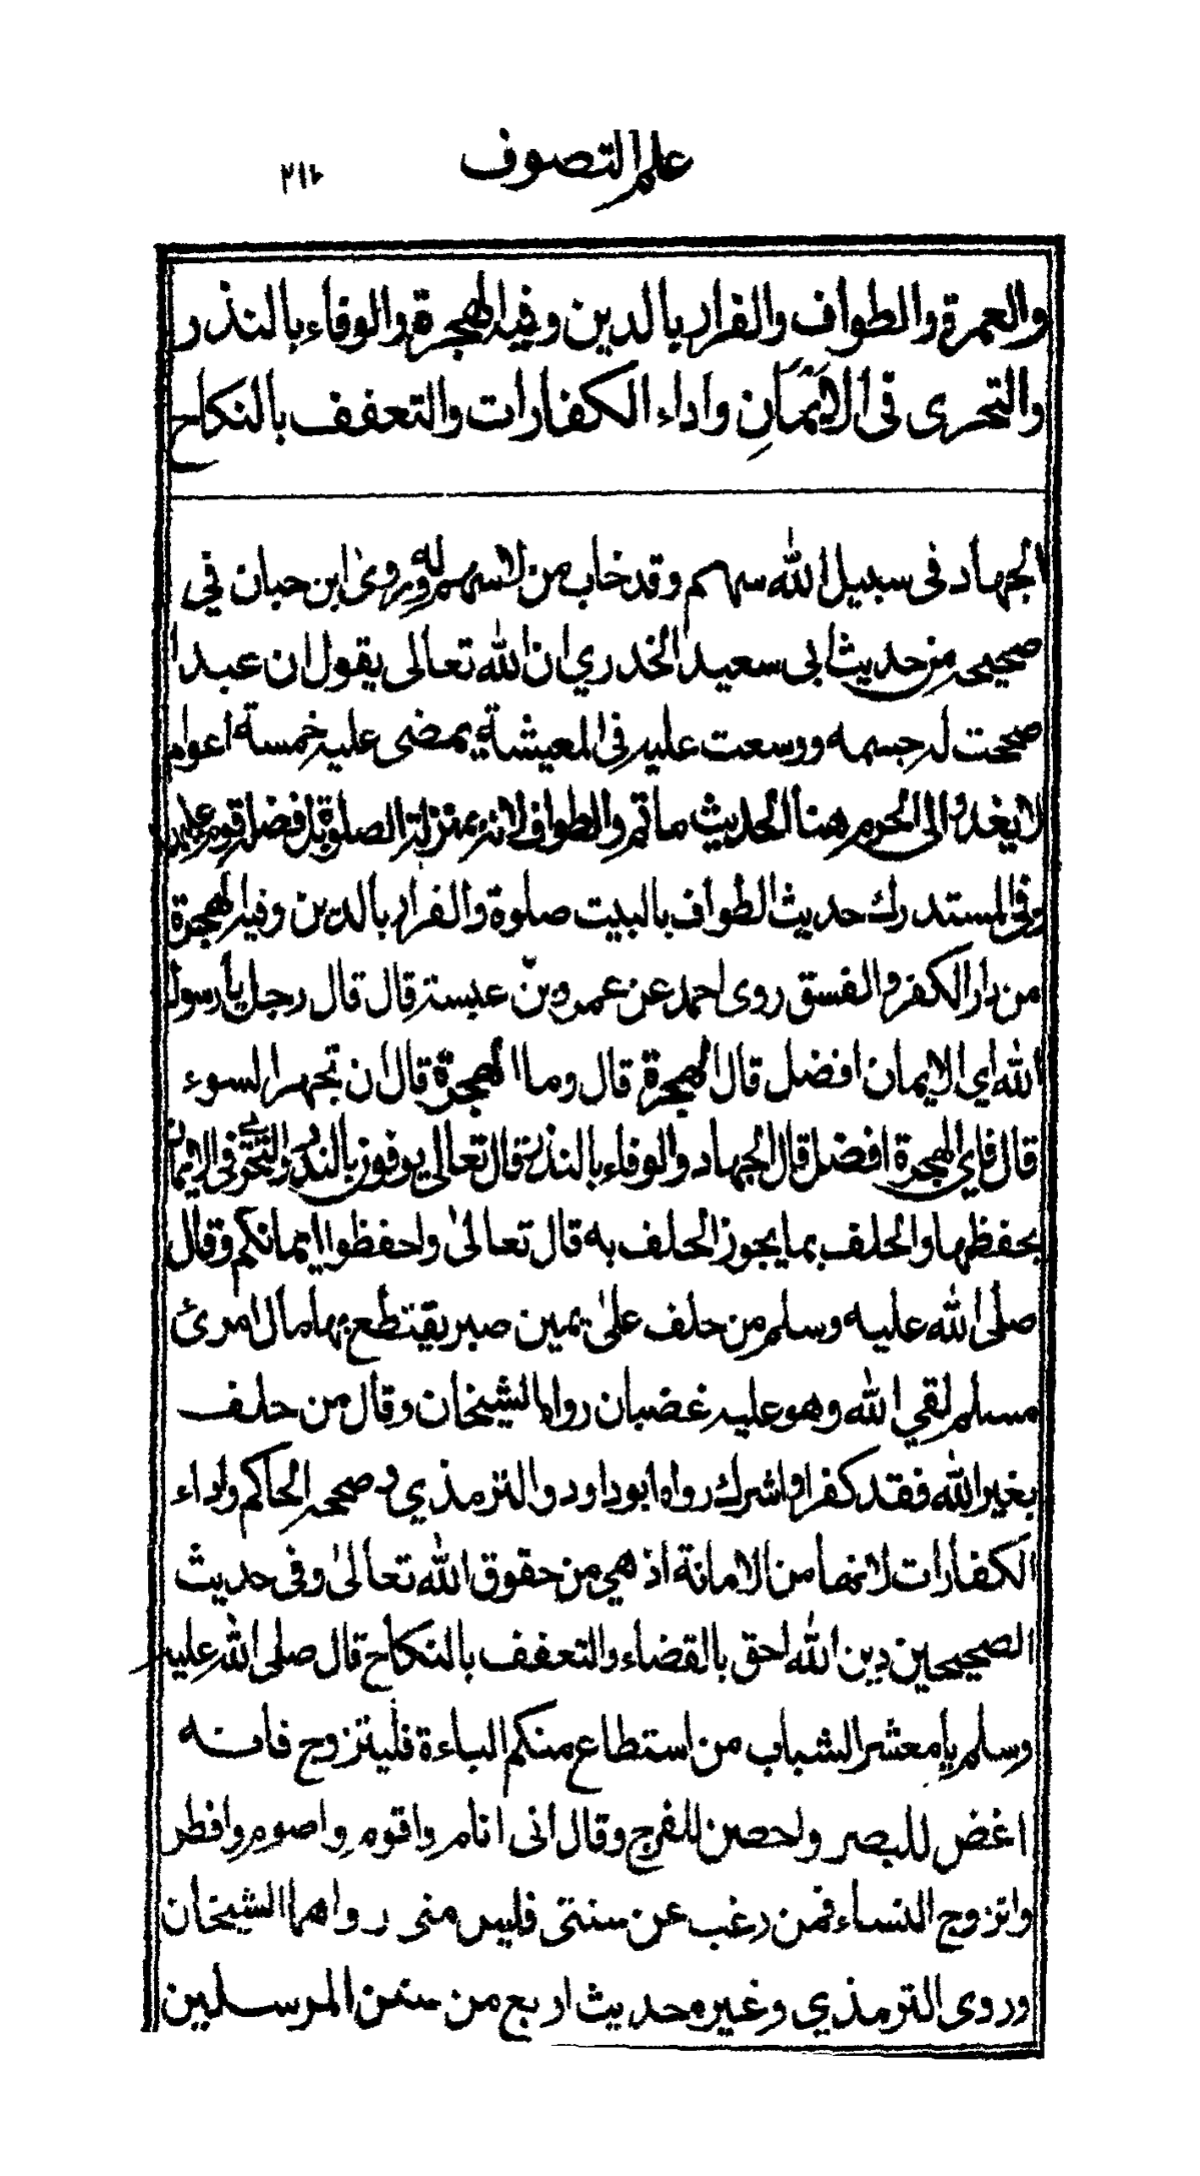 علم التصوف ٢١٢
والعمرة والطواف والفرار بالدين وفيه الهجرة والوفاء بالنذر
والتحرى فى الايمان واداء الكفارات والتعفف بالنكاح
الجهاد فى سبيل الله سهم وقد خاب من لا سهم له وروى ابن حبان في
صحيحه من حديث ابى سعيد الخدري ان الله تعالى يقول ان عبدا
صححت له جسمه ووسعت عليه فى المعيشة يمضى عليه خمسة اعوام
لا يغدو الى الحرم هنا الحديث ما تم والطواف لانه بمنزلة الصلوة بل فضله قوم عليه
وفى المستدرك حديث الطواف بالبيت صلوة والفرار بالدين وفيه الهجرة
من دار الكفر والفسق روى احمد عن عمرو بن عبسة قال قال رجل يا رسول
الله اي الايمان افضل قال الهجرة قال وما الهجرة قال ان تجهر السوء
قال فاي الهجرة افضل قال الجهاد والوفاء بالنذر قال تعالى يوفون بالنذر والتحرى فى الايمان
بحفظها والحلف بما يجوز الحلف به قال تعالىٰ واحفظوا ايمانكم وقال
صلى الله عليه وسلم من حلف علىٰ يمين صبر يقتطع بها مال امرئ
مسلم لقي الله وهو عليه غضبان رواه الشيخان وقال من حلف
بغير الله فقد كفر او اشرك رواه ابو داود والترمذي و صححه الحاكم واداء
الكفارات لانها من الامانة اذ هي من حقوق الله تعالىٰ وفى حديث
الصحيحين دين الله احق بالقضاء والتعفف بالنكاح قال صلى الله عليه
وسلم يا معشر الشباب من استطاع منكم الباءة فليتزوج فانه
اغض للبصر واحصن للفرج وقال انى انام واقوم واصوم وافطر
واتزوج النساء فمن رغب عن سنتى فليس منى رواهما الشيخان
وروى الترمذي وغيره حديث اربع من سنن المرسلين